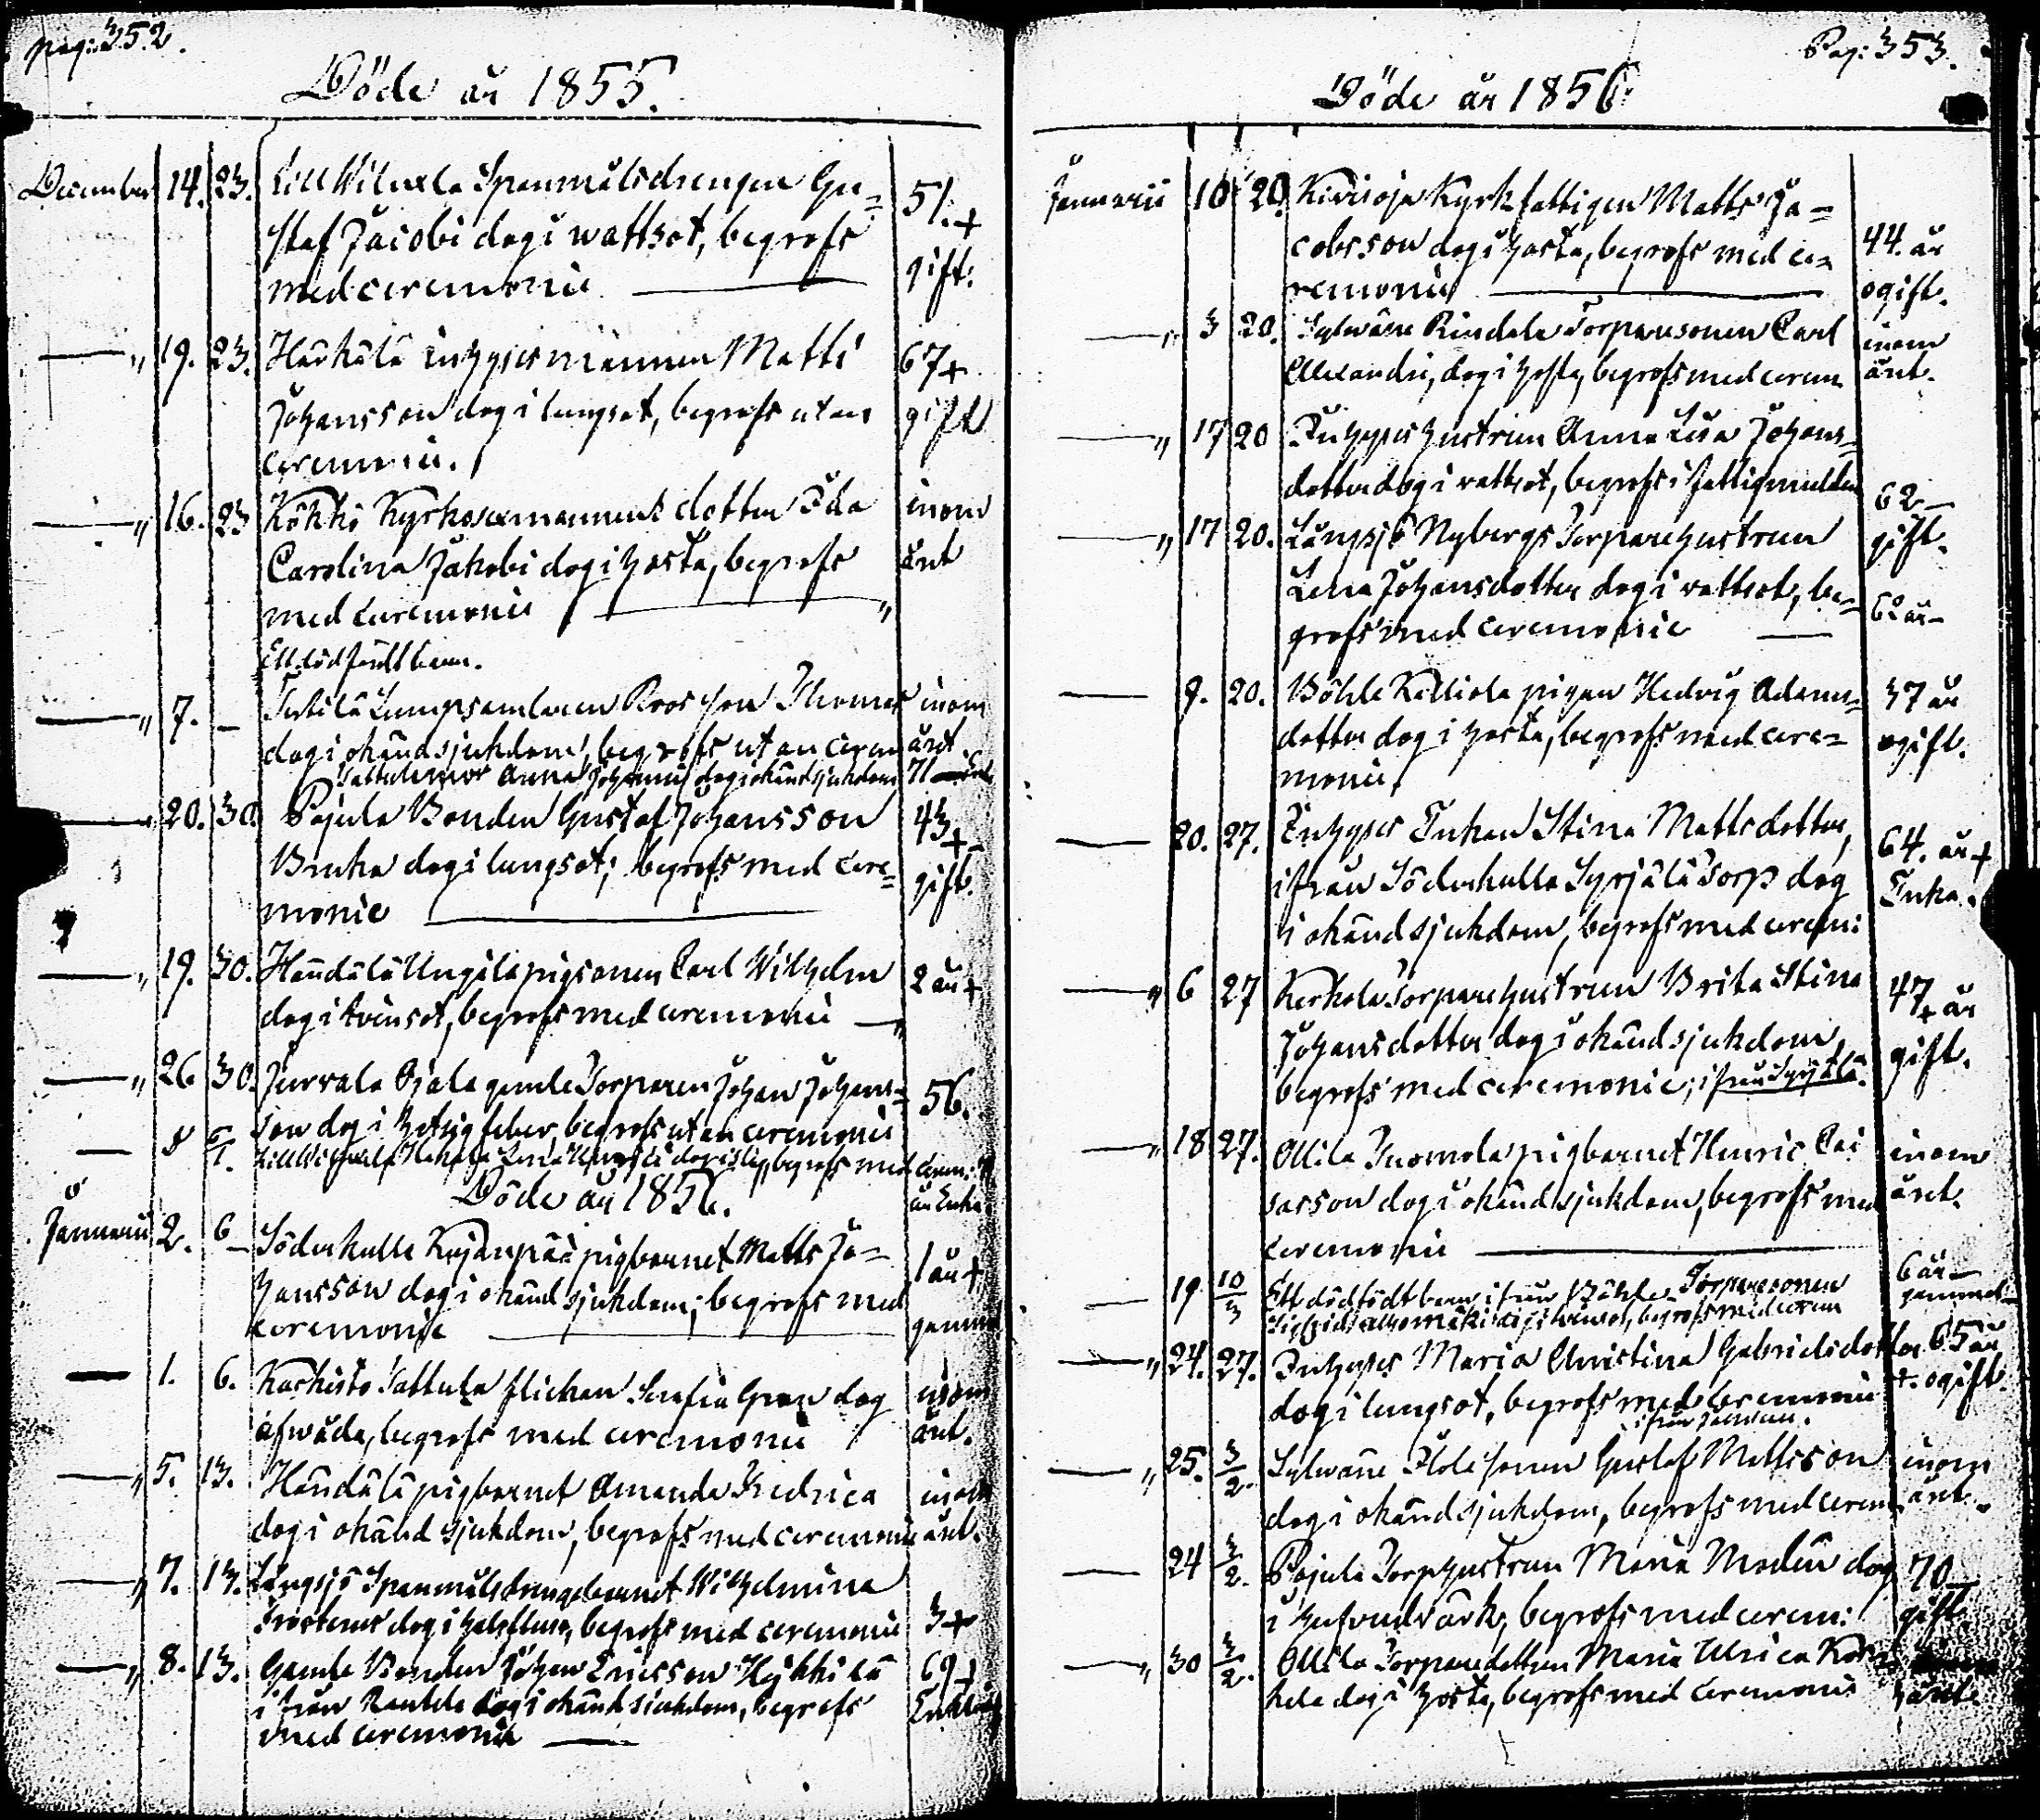 pag: 352.
Döde år 1855.
December 14. 23. Lill Wilnela Spanmålsdrengen Gu=
staf Jacobi dog i wattsot, begrofs 51.+
med ceremonie gift.
" 19. 23. Härkälä Inhyses mannen Matti 67+
Johansson dog i lungsot, begrofs utan gift
ceremonie.
" 16. 23 Kökkö dotter Ida inom
Carolina Jakobi dog i hosta, begrofs året
med ceremonie "
Ett dödfödt barn.
" 7. – Thomas inom
dog i okänd sjukdom, begrofs utan cerem året
Anna dog i okänd sjukdom 71
" 20. 30. Pajula Bonden Gustaf Johansson 43+
dog i lungsot; begrofs med cere= gift.
monie
" 19. 30. Händälä Ungila pigsonen Carl Wilhelm 2 år+
dog i tvinsot, begrofs med ceremonie "
" 26 30. Jurvala Ojala gamle Torparen Johan Johans= 56.
son dog i hetsig feber, begrofs utan ceremonie
begrofs med cerem:
Döde år 1856.
Januarii 2. 6 Söderkulla pigbarnet Matts Jo= 1 år+
hansson dog i okänd sjukdom; begrofs med
ceremonie gammal
1. 6. Karkisto Sattula flickan Serafia Gran dog inom
af våda, begrofs med ceremonie året.
" 5. 13. Händälä pigbarnet Amanda Fredrica inom
dog i okänd sjukdom, begrofs med ceremonie året.
" 7. 13. Långsjö Spanmålsdrengebarnet Wilhelmina
dog i halsfluss, begrofs med ceremonie 3+
" 8. 13. Gamle Bonden Johan Ericsson Heikkilä 69+
ifrån dog i okänd sjukdom, begrofs Enkling
med ceremonie
Pag: 353.
Döde år 1856
Januarii 10 20. Kivioja Kyrkfattigen Matts Ja=
cobsson dog i hosta, begrofs med ce= 44. år
remonie ogift.
" 3 20. Sylwäne Rindala Torparesonen Carl inom
Alexandri, dog i hosta, begrofs med cerem året.
" 17 20 Inhyses hustrun Anna Lisa Johans=
dotter dog i vattsot, begrofs i fattigmullen 62–
" 17 20. Långsjö Nybergs Torparehustrun gift.
Lena Johansdotter dog i vattsot, be=
grofs med ceremonie 62 år–
9. 20. Böhle Killiola pigan Hedvig Adams= 37 år
dotter dog i hosta, begrofs med cere= ogift.
monie
20. 27. Inhyses Enkan Stina Mattsdotter, 64. år+
ifrån Söderkulla Syrjälä Torp dog Enka.
i okänd sjukdom, begrofs med cerem:
" 6 27 Kerkola Torparehustrun Brita Stina 47+ år
Johansdotter dog i okänd sjukdom, gift.
begrofs med ceremonie; ifrån Syrjälä.
" 18 27. Ollila Tuomola pigbarnet Henric Cai inom
sarsson dog i okänd sjukdom, begrofs med året.
ceremonie
19 10/3 Ett dödfödt barn ifrån Böhle Torparesonen 6 år–
dog i tvinsot, begrofs med cerem gammal
" 24. 27. Inhyses Maria Christina Gabrielsdotter 65 år
dog i lungsot, begrofs med ceremonie +. ogift.
" 25. 3/2. Sylwäne sonen Gustaf Mattsson inom
dog i okänd sjukdom, begrofs med cerem året.
24 3/2. Pajula Torphustrun Maria Modén dog 70–
i hufvudvärk, begrofs med cerem: gift.
" 30 3/2. Ollila Torparedottren Maria Ulrica
dog i hosta, begrofs med ceremonie